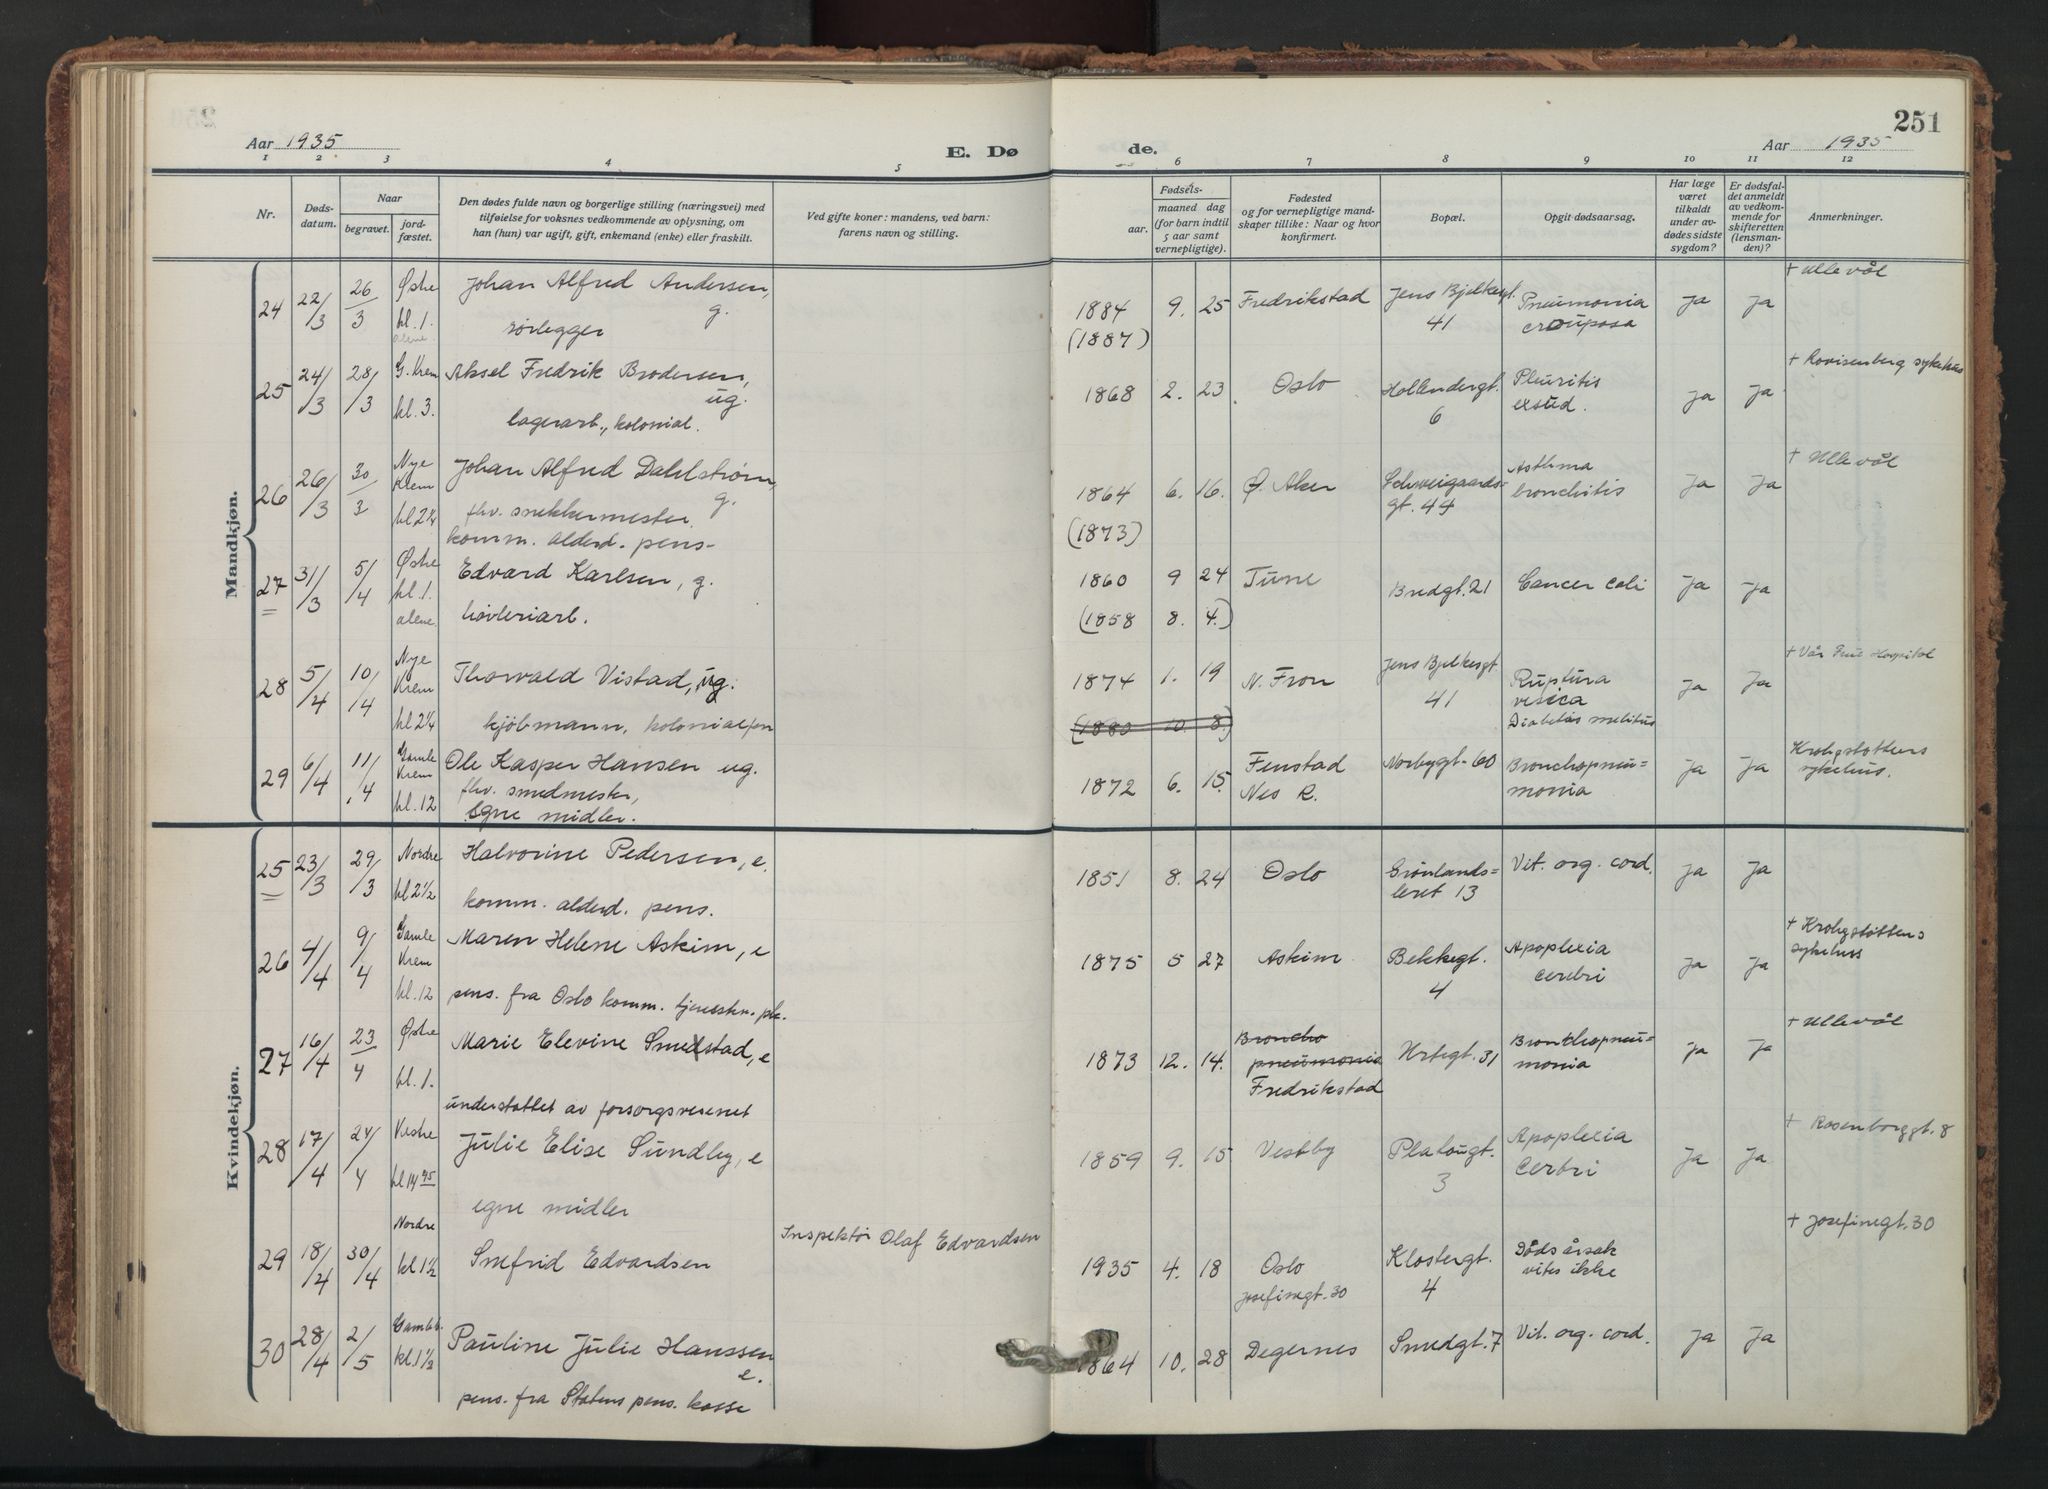 251
Aar 1935
E. Døde.
Aar 1935
1 2 3 4 5 6 7 8 9 10 11 12
Nr.
Døds-
datum.
Naar
begravet.
jord-
fæstet.
Den dødes fulde navn og borgerlige stilling (næringsvei) med
tilføielse for voksnes vedkommende av oplysning, om
han (hun) var ugift, gift, enkemand (enke) eller fraskilt.
Ved gifte koner: mandens, ved barn:
farens navn og stilling.
Fødsels-
aar.
maaned dag
(for barn indtil
5 aar samt
vernepligtige).
Fødested
og for vernepligtige mand-
skaper tillike: Naar og hvor
konfirmert.
Bopæl.
Opgit dødsaarsag.
Har læge
været
tilkaldt
under av-
dødes sidste
sygdom?
Er dødsfal-
det anmeldt
av vedkom-
mende for
skifteretten
(lensman-
den)?
Anmerkninger.
Mandkjøn.
24 22/3 26/3 Østre kl. 1. alene
Johan Alfred Andersen, g.
rørlegger
1884 9. 25 Fredrikstad Jens Bjelkesgt. 41 Pneumonia crouposa ja ja + Ullevål
(1887)
25 24/3 28/3 G. Krem kl. 3.
Aksel Fredrik Brodersen, ug.
lagerarb., kolonial.
1868 2. 23 Oslo Hollendergt. 6 Pleuritis exsud. ja ja + Lovisenberg sykehus
26 26/3 30/3 Nye Krem kl 2¼
Johan Alfred Dahlstrøm, g.
fhv. snekkermester.
komm. alderd. pens-
1864 6. 16. Ø. Aker Schweigaards=gt. 44 Asthma bronchitis ja ja + Ullevål
(1873)
27 31/3 5/4 Østre kl. 1. alene.
Edvard Karlsen, g.
høvleriarb.
1860 9 24 Tune Bredgt. 21 Cancer coli ja ja
(1858 8. 4.)
28 5/4 10/4 Nye Krem kl 2¼
Thorvald Vistad, ug.
kjøbmann, kolonial
1874 1. 19 N. Fron Jens Bjelkesgt 41 Ruptura vesica Diabetes melitus ja ja + Vår Frue Hospital
(1880 10. 8.)
29 6/4 11/4 Gamle Krem kl. 12
Ole Kasper Hansen ug.
fhv. smedmester,
egne midler.
1872 6. 15. Fenstad Nes R. Norbygt. 60 Bronchopneu=monia ja ja Krohgstøttens sykehus.
Kvindekjøn.
25 23/3 29/3 Nordre kl 2½
Halvorine Pedersen, e.
komm. alderd. pens.
1851 8. 24 Oslo Grønlands=leret 13 Vit. org. cord. ja ja
26 4/4 9/4 Gamle Krem kl. 12
Maren Helene Askim, e
pens. fra Oslo komm. tjenestm. pk.
1875 5 27 Askim Bekkegt. 4 Apoplexia cerebri ja ja + Krohgstøttens sykehus
27 16/4 23/4 Østre kl. 1.
Marie Elevine Smedstad, e
understøttet av forsorgsvesenet
1873 12. 14. Broncho pneumonia Fredrikstad Urtegt. 31 Bronchopneu=monia ja ja + Ullevål
28 17/4 24/4 Vestre kl 14 45
Julie Elise Sundby, e
egne midler
1859 9. 15 Vestby Platougt. 3 Apoplexia cerbri ja ja + Rosenborggt. 8
29 18/4 30/4 Nordre kl 1½
Snefrid Edvardsen
Inspektør Olaf Edvardsen
1935 4. 18 Oslo Josefinegt. 30 Klostergt. 4 Dødsårsak vites ikke + Josefinegt. 30
30 28/4 2/5 Gamleb. kl. 1½
Pauline Julie Hanssen e.
pens. fra Statens pens. kasse
1864 10. 28 Degernes Smedgt. 7 Vit. org. cord. ja ja